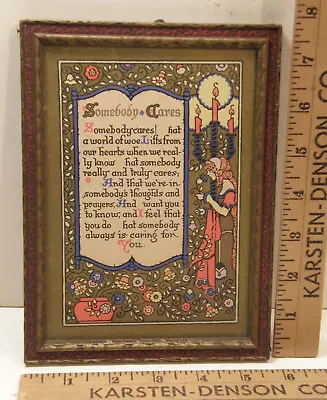 Somebody Cares
Somebody cares! hat
a world of woe Lifts from
our hearts when we real-
ly know hat somebody
really and truly cares;
And that we're in
somebody's thoughts and
prayers, And want you
to know; and I feel that
you do hat somebody
always is caring for
You.
1 2 3 4 5 6
KARSTEN-DENSON CO
1 2 3 4 5 6 7 8
KARSTEN-DENSON